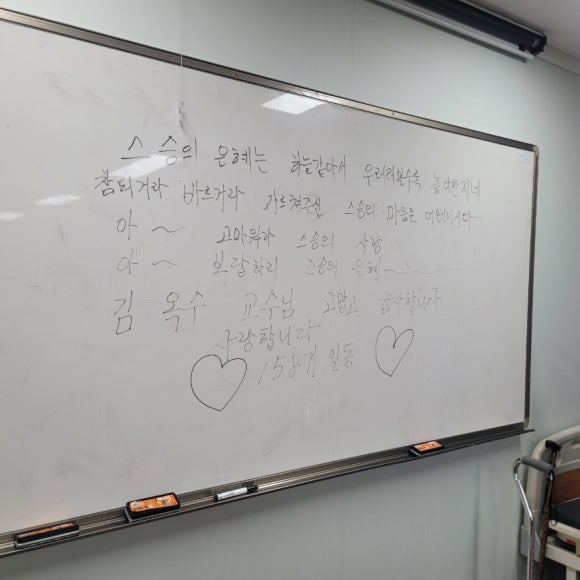 스승의 은혜는 하늘같아서 우러러볼수록 높아만지네
참되거라 바르거라 가르쳐주신 스승의 마음은 어버이시다
아~ 고마워라 스승의 사랑
아~ 보답하리 스승의 은혜~
김옥수 교수님 고맙고 감사합니다
사랑합니다
158기 일동